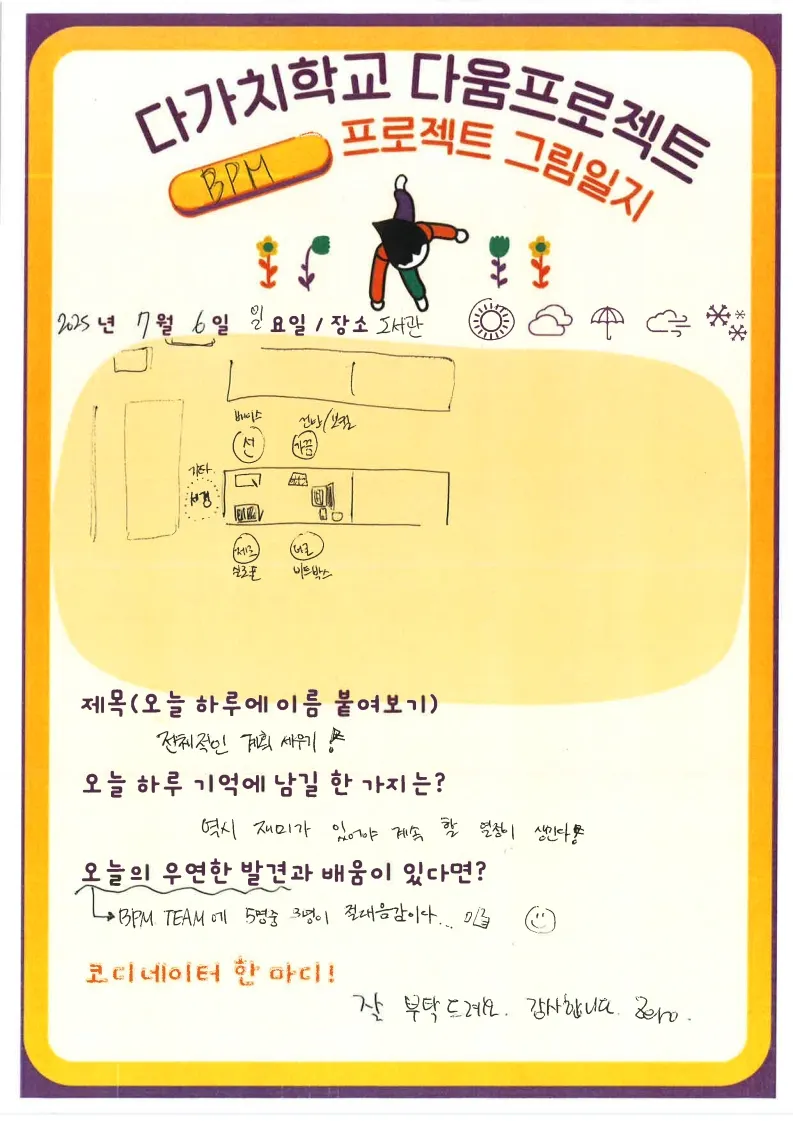 다가치학교 다움프로젝트
프로젝트 그림일지
BPM
2025 년 7 월 6 일 일 요일 / 장소 도서관
베이스 건반/보컬
선 가끔
기타
서경
제로
실로폰 비트박스
제목(오늘 하루에 이름 붙여보기)
전체적인 계획 세우기!
오늘 하루 기억에 남길 한 가지는?
역시 재미가 있어야 계속 할 열정이 생긴다!
오늘의 우연한 발견과 배움이 있다면?
BPM TEAM에 5명중 3명이 절대음감이다...
코디네이터 한 마디!
잘 부탁드려요. 감사합니다. Zero.